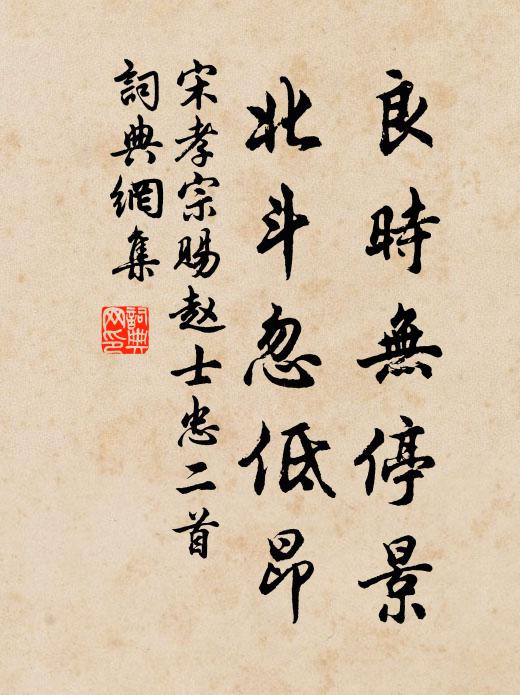 良時無停景
北斗忽低昂
宋孝宗賜赵士忠二首
詞典網集
詞典网印